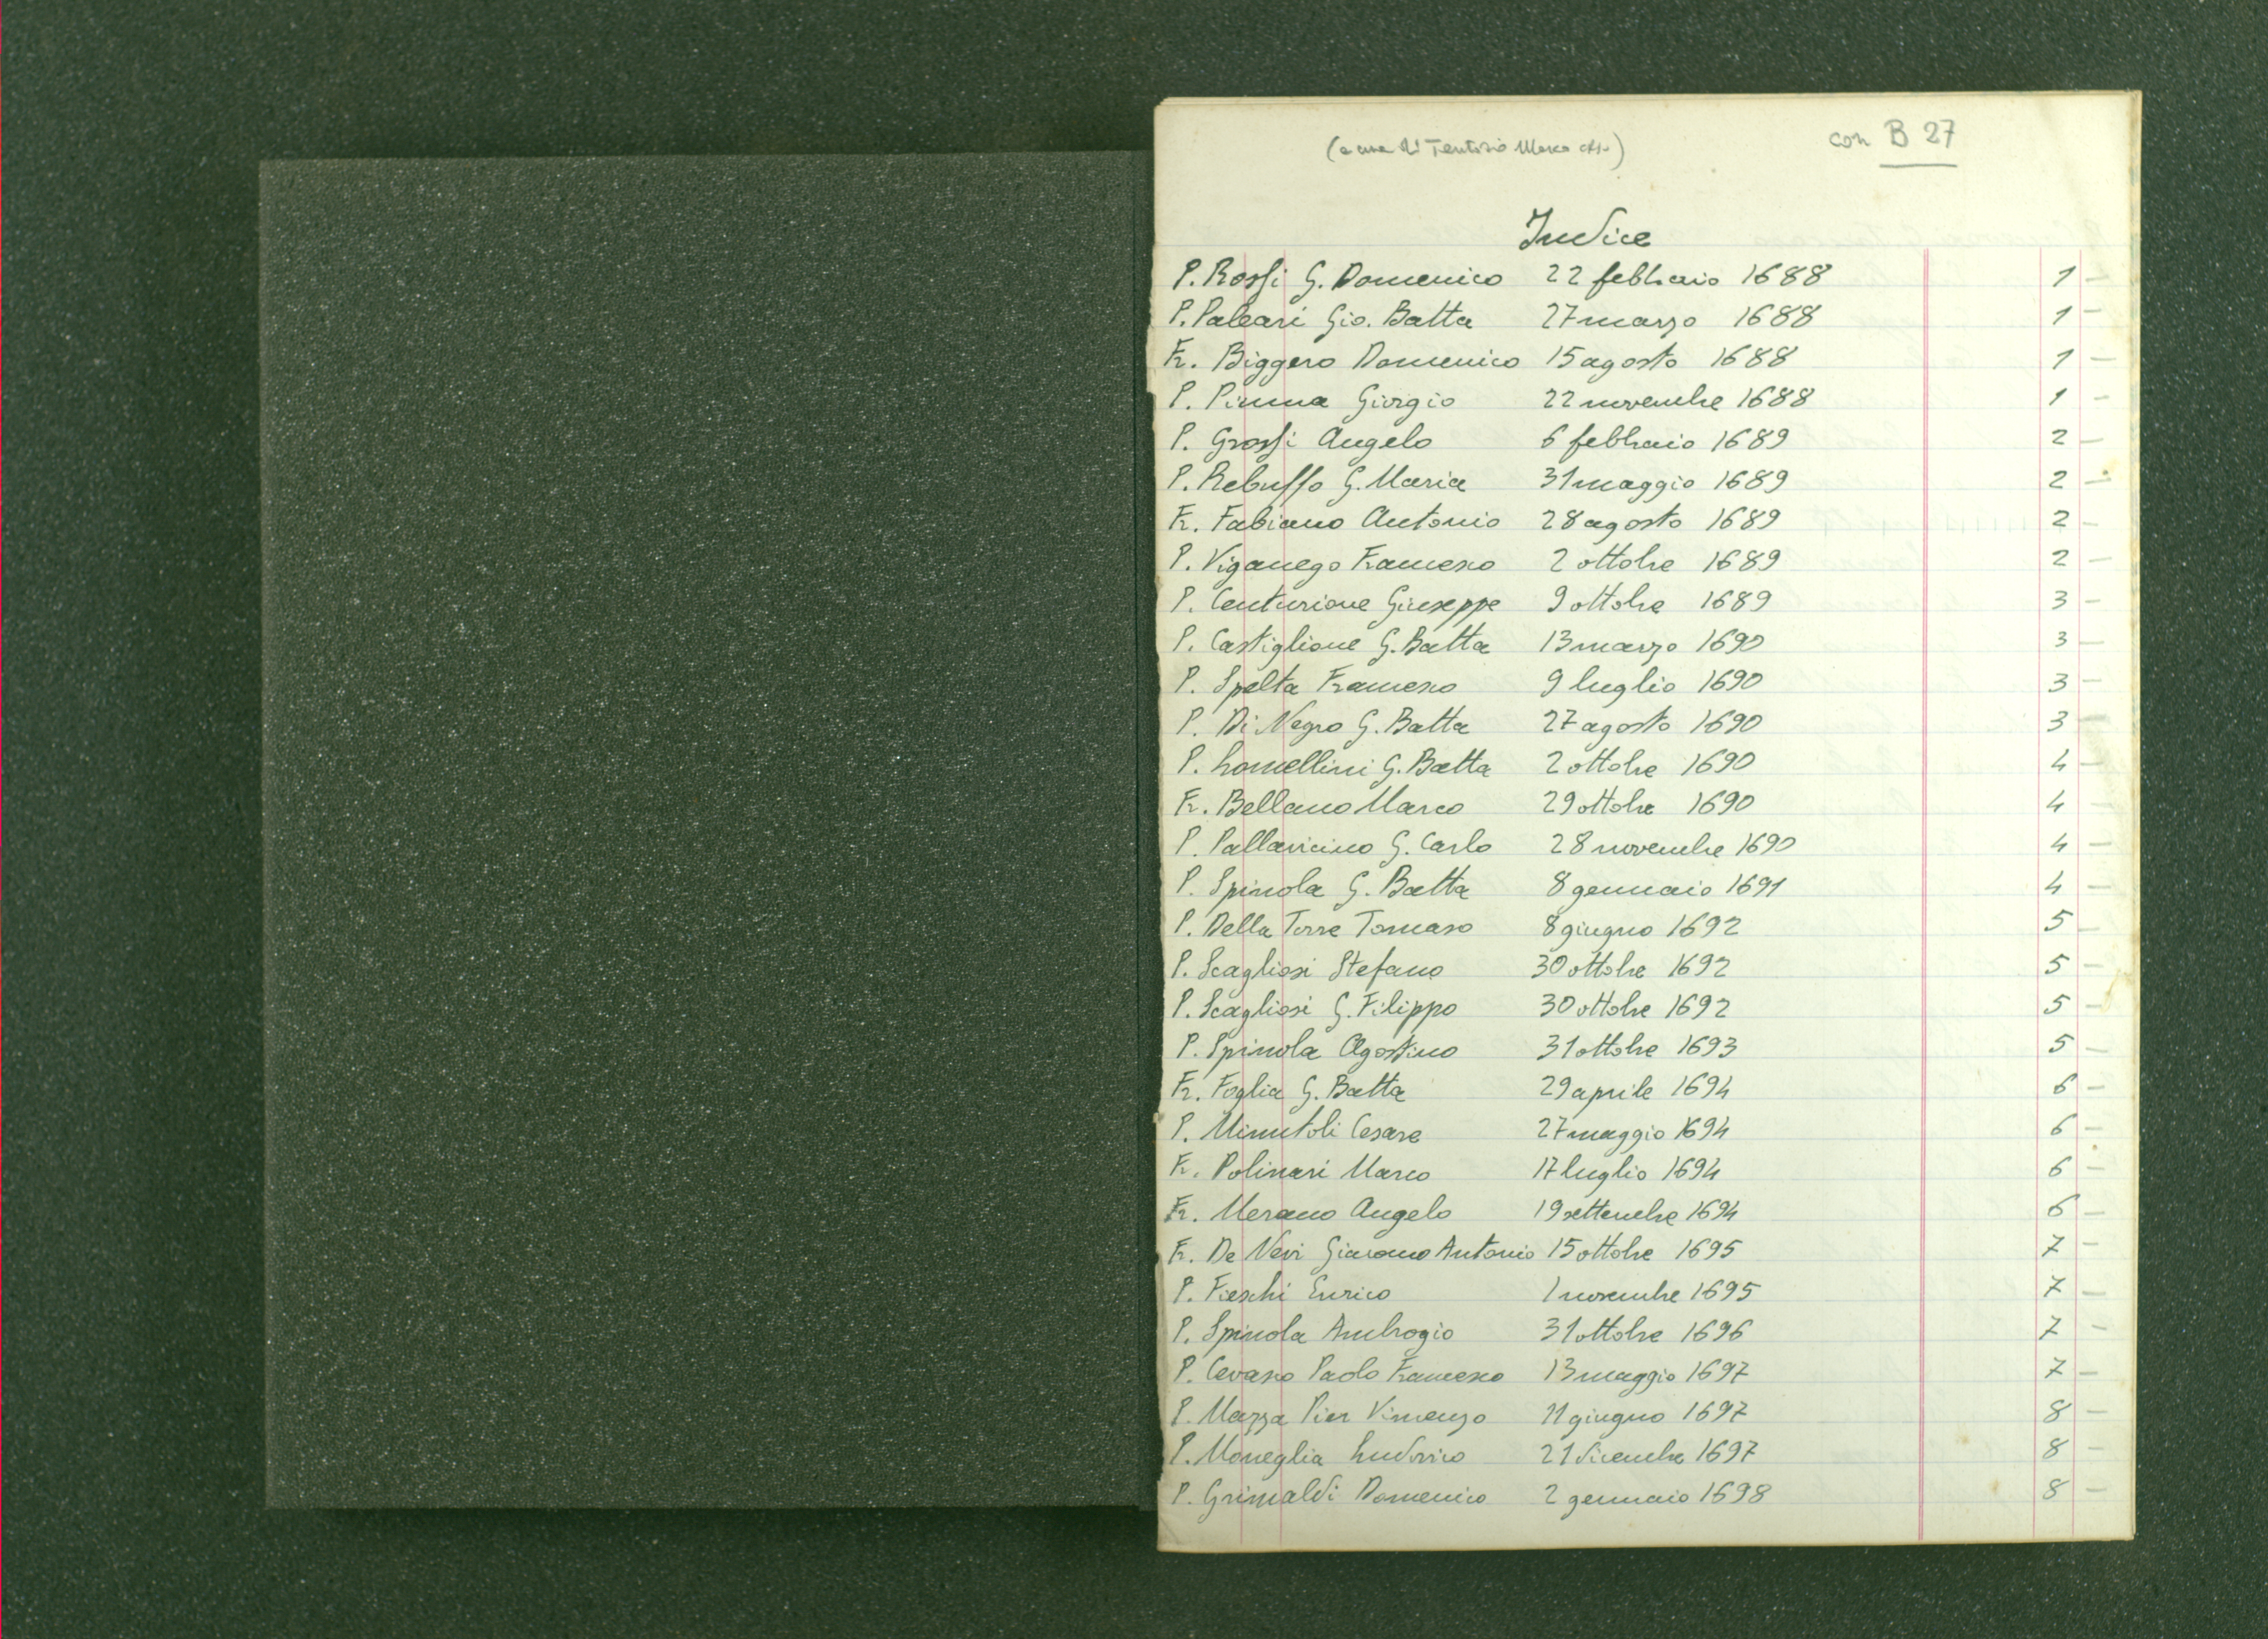 (a cura di Tentorio Marco crs.) con B 27
Indice
P. Rossi G. Domenico 22 febbraio 1688 1 -
P. Paleari Gio. Batta 27 marzo 1688 1 -
Fr. Biggero Domenico 15 agosto 1688 1 -
P. Pinna Giorgio 22 novembre 1688 1 -
P. Grossi Angelo 6 febbraio 1689 2 -
P. Rebuffo G. Maria 31 maggio 1689 2 -
Fr. Fabiano Antonio 28 agosto 1689 2 -
P. Viganego Francesco 2 ottobre 1689 2 -
P. Centurione Giuseppe 9 ottobre 1689 3 -
P. Castiglione G. Batta 13 marzo 1690 3 -
P. Spelta Francesco 9 luglio 1690 3 -
P. Di Negro G. Batta 27 agosto 1690 3 -
P. Lomellini G. Batta 2 ottobre 1690 4 -
Fr. Bellano Marco 29 ottobre 1690 4 -
P. Pallavicino G. Carlo 28 novembre 1690 4 -
P. Spinola G. Batta 8 gennaio 1691 4 -
P. Della Torre Tomaso 8 giugno 1692 5 -
P. Scagliosi Stefano 30 ottobre 1692 5 -
P. Scagliosi G. Filippo 30 ottobre 1692 5 -
P. Spinola Agostino 31 ottobre 1693 5 -
Fr. Foglia G. Batta 29 aprile 1694 6 -
P. Minutoli Cesare 27 maggio 1694 6 -
Fr. Polinari Marco 17 luglio 1694 6 -
Fr. Merano Angelo 19 settembre 1694 6 -
Fr. De Nevi Giacomo Antonio 15 ottobre 1695 7 -
P. Fieschi Enrico 1 novembre 1695 7 -
P. Spinola Ambrogio 31 ottobre 1696 7 -
P. Cevasco Paolo Francesco 13 maggio 1697 7 -
P. Mazza Pier Vincenzo 11 giugno 1697 8 -
P. Moneglia Ludovico 21 dicembre 1697 8 -
P. Grimaldi Domenico 2 gennaio 1698 8 -